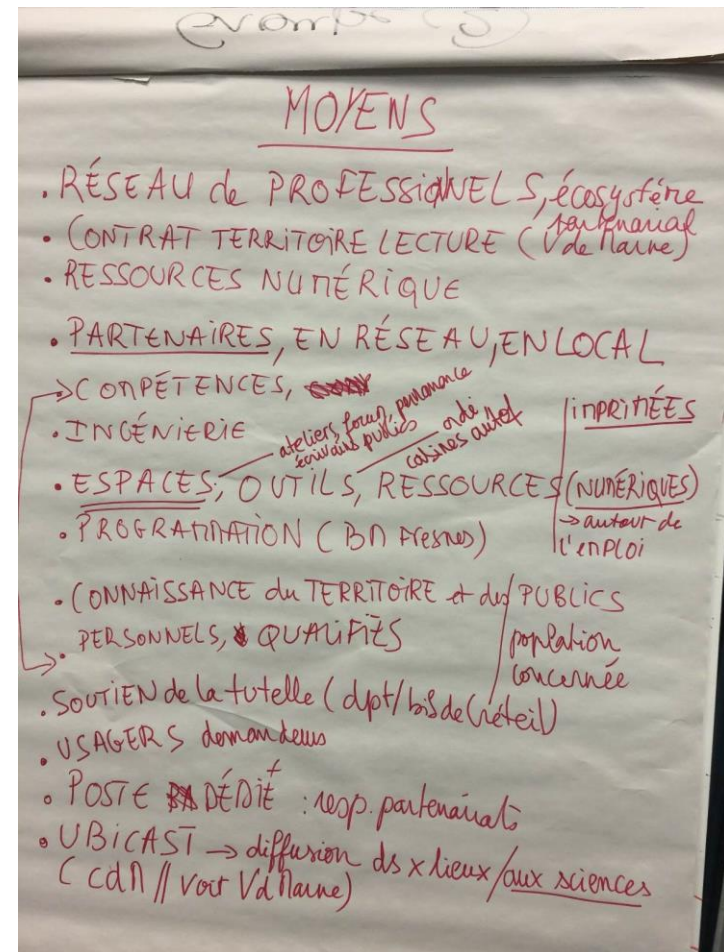 MOYENS
. RÉSEAU de PROFESSIONNELS, écosystème
partenarial
. CONTRAT TERRITOIRE LECTURE (V de Marne)
. RESSOURCES NUMÉRIQUE
. PARTENAIRES, EN RÉSEAU, EN LOCAL
→ COMPÉTENCES,
. INGÉNIERIE
ateliers, focus, permanence
écrivains publics
ordi
cabines autof
imprimées
. ESPACES, OUTILS, RESSOURCES (NUMÉRIQUES)
→ autour de
l'emploi
. PROGRAMMATION (BM Fresnes)
. CONNAISSANCE du TERRITOIRE et des PUBLICS
population
concernée
. PERSONNELS, QUALIFIÉS
. SOUTIEN de la tutelle (dpt/ de Créteil)
. USAGERS demandeurs
. POSTE DÉDIÉ : resp. partenariats
. UBICAST → diffusion ds x lieux / aux sciences
(cdM // voir Vd Marne)